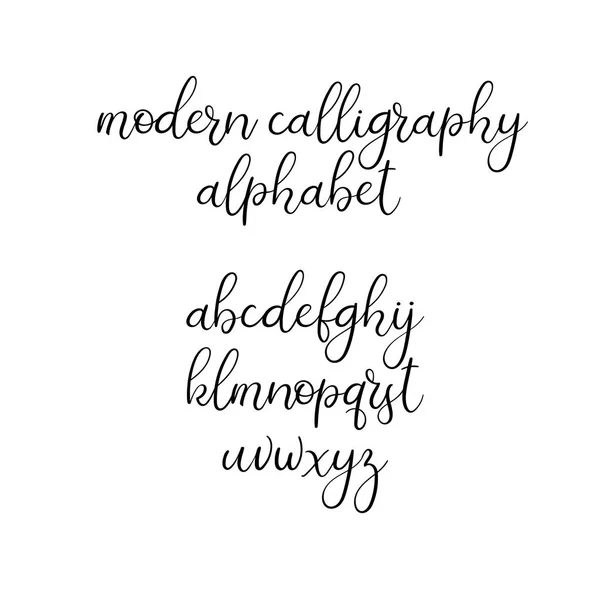 modern calligraphy
alphabet
abcdefghij
klmnopqrst
uvwxyz